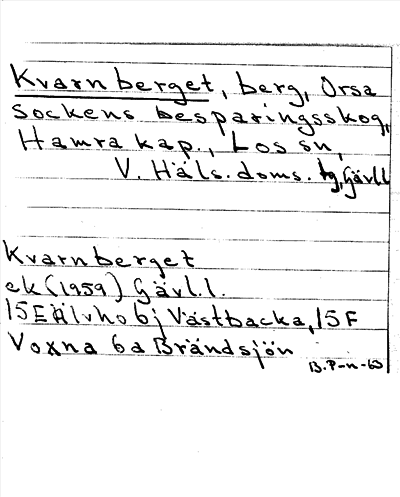 Kvarnberget, berg, Orsa
Sockens besparingsskog,
Hamra kap., Los sn,
V. Häls. doms. tg, Gävl.l
Kvarnberget
ek (1959) Gävl.l.
15E Älvho 6j Västbacka, 15F
Voxna 6a Brändsjön
B.P-n-63